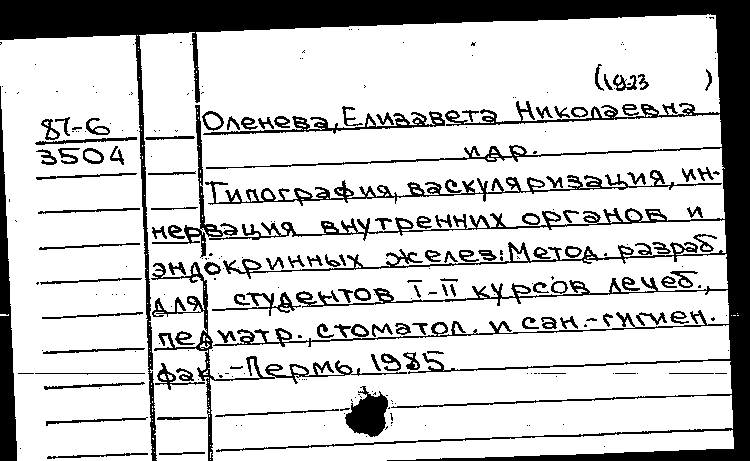 (1923 )
87-6 Оленева, Елизавета Николаевна
3504 и др.
Типография, васкуляризация, ин-
нервация внутренних органов и
эндокринных желез: Метод. разраб.
для студентов I-II курсов лечеб.,
педиатр., стоматол. и сан.-гигиен.
фак. - Пермь, 1985.